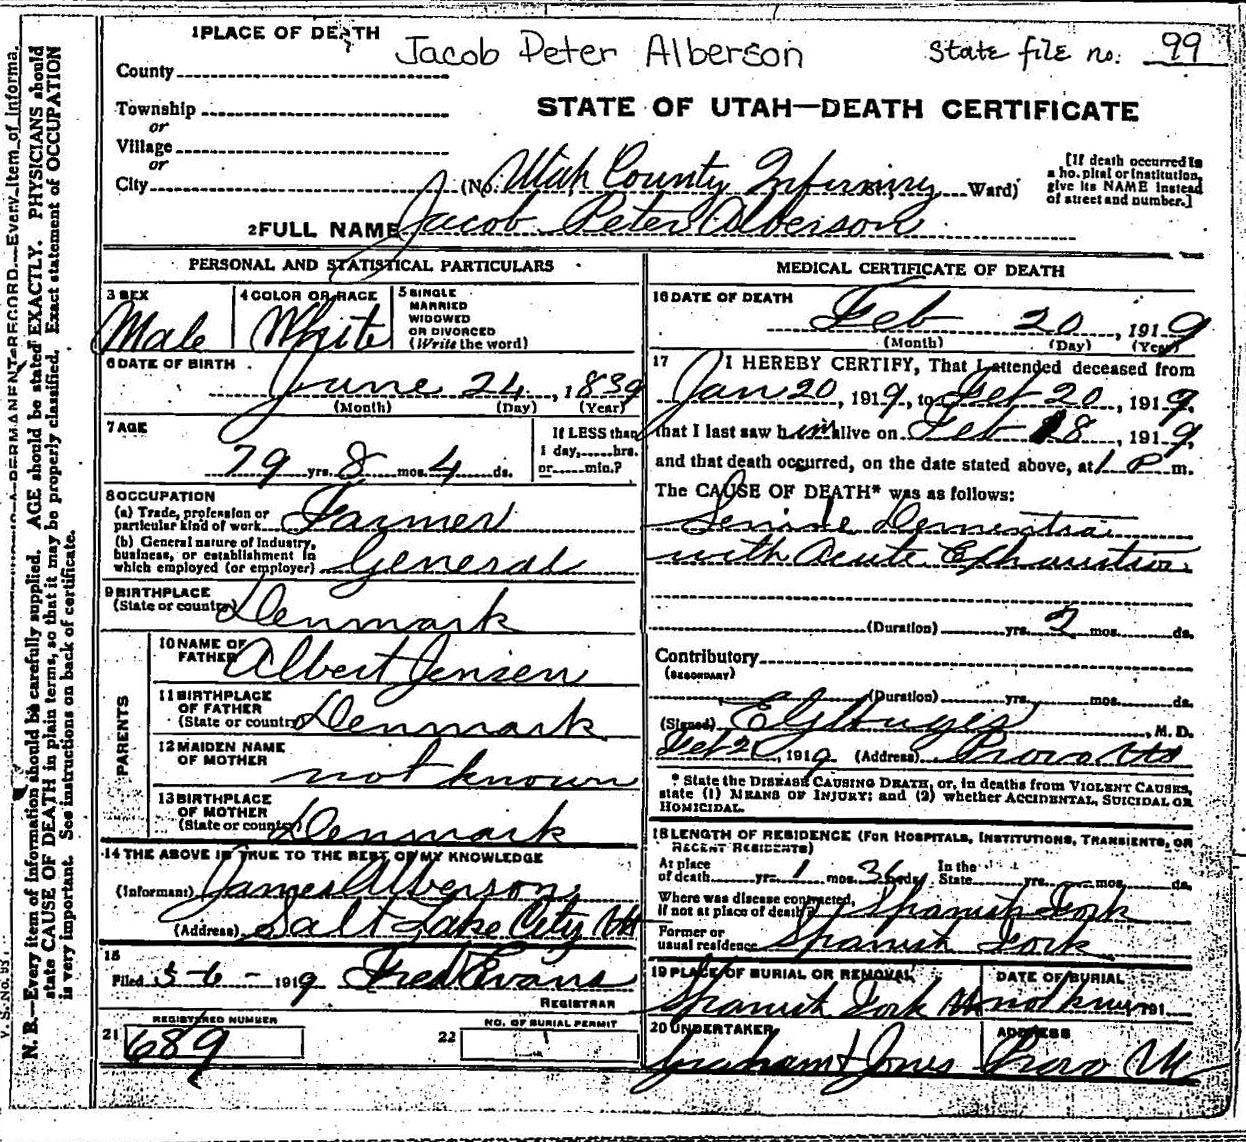 1 PLACE OF DEATH
Jacob Peter Alberson State file no. 99
County
Township
or
Village
or
City
STATE OF UTAH—DEATH CERTIFICATE
(No. Utah County Infirmiry Ward)
[If death occurred in
a hospital or institution,
give its NAME instead
of street and number.]
2 FULL NAME Jacob Peter Alberson
PERSONAL AND STATISTICAL PARTICULARS
3 SEX
Male
4 COLOR OR RACE
White
5 SINGLE
MARRIED
WIDOWED
OR DIVORCED
(Write the word)
6 DATE OF BIRTH
June 24, 1839
(Month) (Day) (Year)
7 AGE
79 yrs. 8 mos. 4 ds.
If LESS than
1 day,......hrs.
or......min.?
8 OCCUPATION
(a) Trade, profession or
particular kind of work Farmer
(b) General nature of industry,
business, or establishment in
which employed (or employer) General
9 BIRTHPLACE
(State or country) Denmark
PARENTS
10 NAME OF
FATHER Albert Jensen
11 BIRTHPLACE
OF FATHER
(State or country) Denmark
12 MAIDEN NAME
OF MOTHER
not known
13 BIRTHPLACE
OF MOTHER
(State or country) Denmark
14 THE ABOVE IS TRUE TO THE BEST OF MY KNOWLEDGE
(Informant) James Alberson
(Address) Salt Lake City Ut
15
Filed 3-6- 1919 Fred Evans
REGISTRAR
REGISTERED NUMBER
21 689
NO. OF BURIAL PERMIT
22
MEDICAL CERTIFICATE OF DEATH
16 DATE OF DEATH
Feb 20, 1919
(Month) (Day) (Year)
17 I HEREBY CERTIFY, That I attended deceased from
Jan 20, 1919, to Feb 20, 1919,
that I last saw him alive on Feb 18, 1919,
and that death occurred, on the date stated above, at 1 P m.
The CAUSE OF DEATH* was as follows:
Senile Dementia
with Acute Exhaustion
(Duration) yrs. 2 mos. ds.
Contributory
(SECONDARY)
(Duration) yrs. mos. ds.
(Signed) , M. D.
Feb 21, 1919 (Address) Provo Ut
* State the DISEASE CAUSING DEATH, or, in deaths from VIOLENT CAUSES,
state (1) MEANS OF INJURY; and (2) whether ACCIDENTAL, SUICIDAL OR
HOMICIDAL.
18 LENGTH OF RESIDENCE (FOR HOSPITALS, INSTITUTIONS, TRANSIENTS, OR
RECENT RESIDENTS)
At place
of death yrs. 1 mos. ds.
In the
State yrs. mos. ds.
Where was disease contracted,
if not at place of death? Spanish Fork
Former or
usual residence Spanish Fork
19 PLACE OF BURIAL OR REMOVAL
Spanish Fork Ut
DATE OF BURIAL
not known 191
20 UNDERTAKER
Graham & Jones
ADDRESS
Provo Ut
N. B.—Every item of information should be carefully supplied. AGE should be stated EXACTLY. PHYSICIANS should
state CAUSE OF DEATH in plain terms, so that it may be properly classified. Exact statement of OCCUPATION
is very important. See instructions on back of certificate.